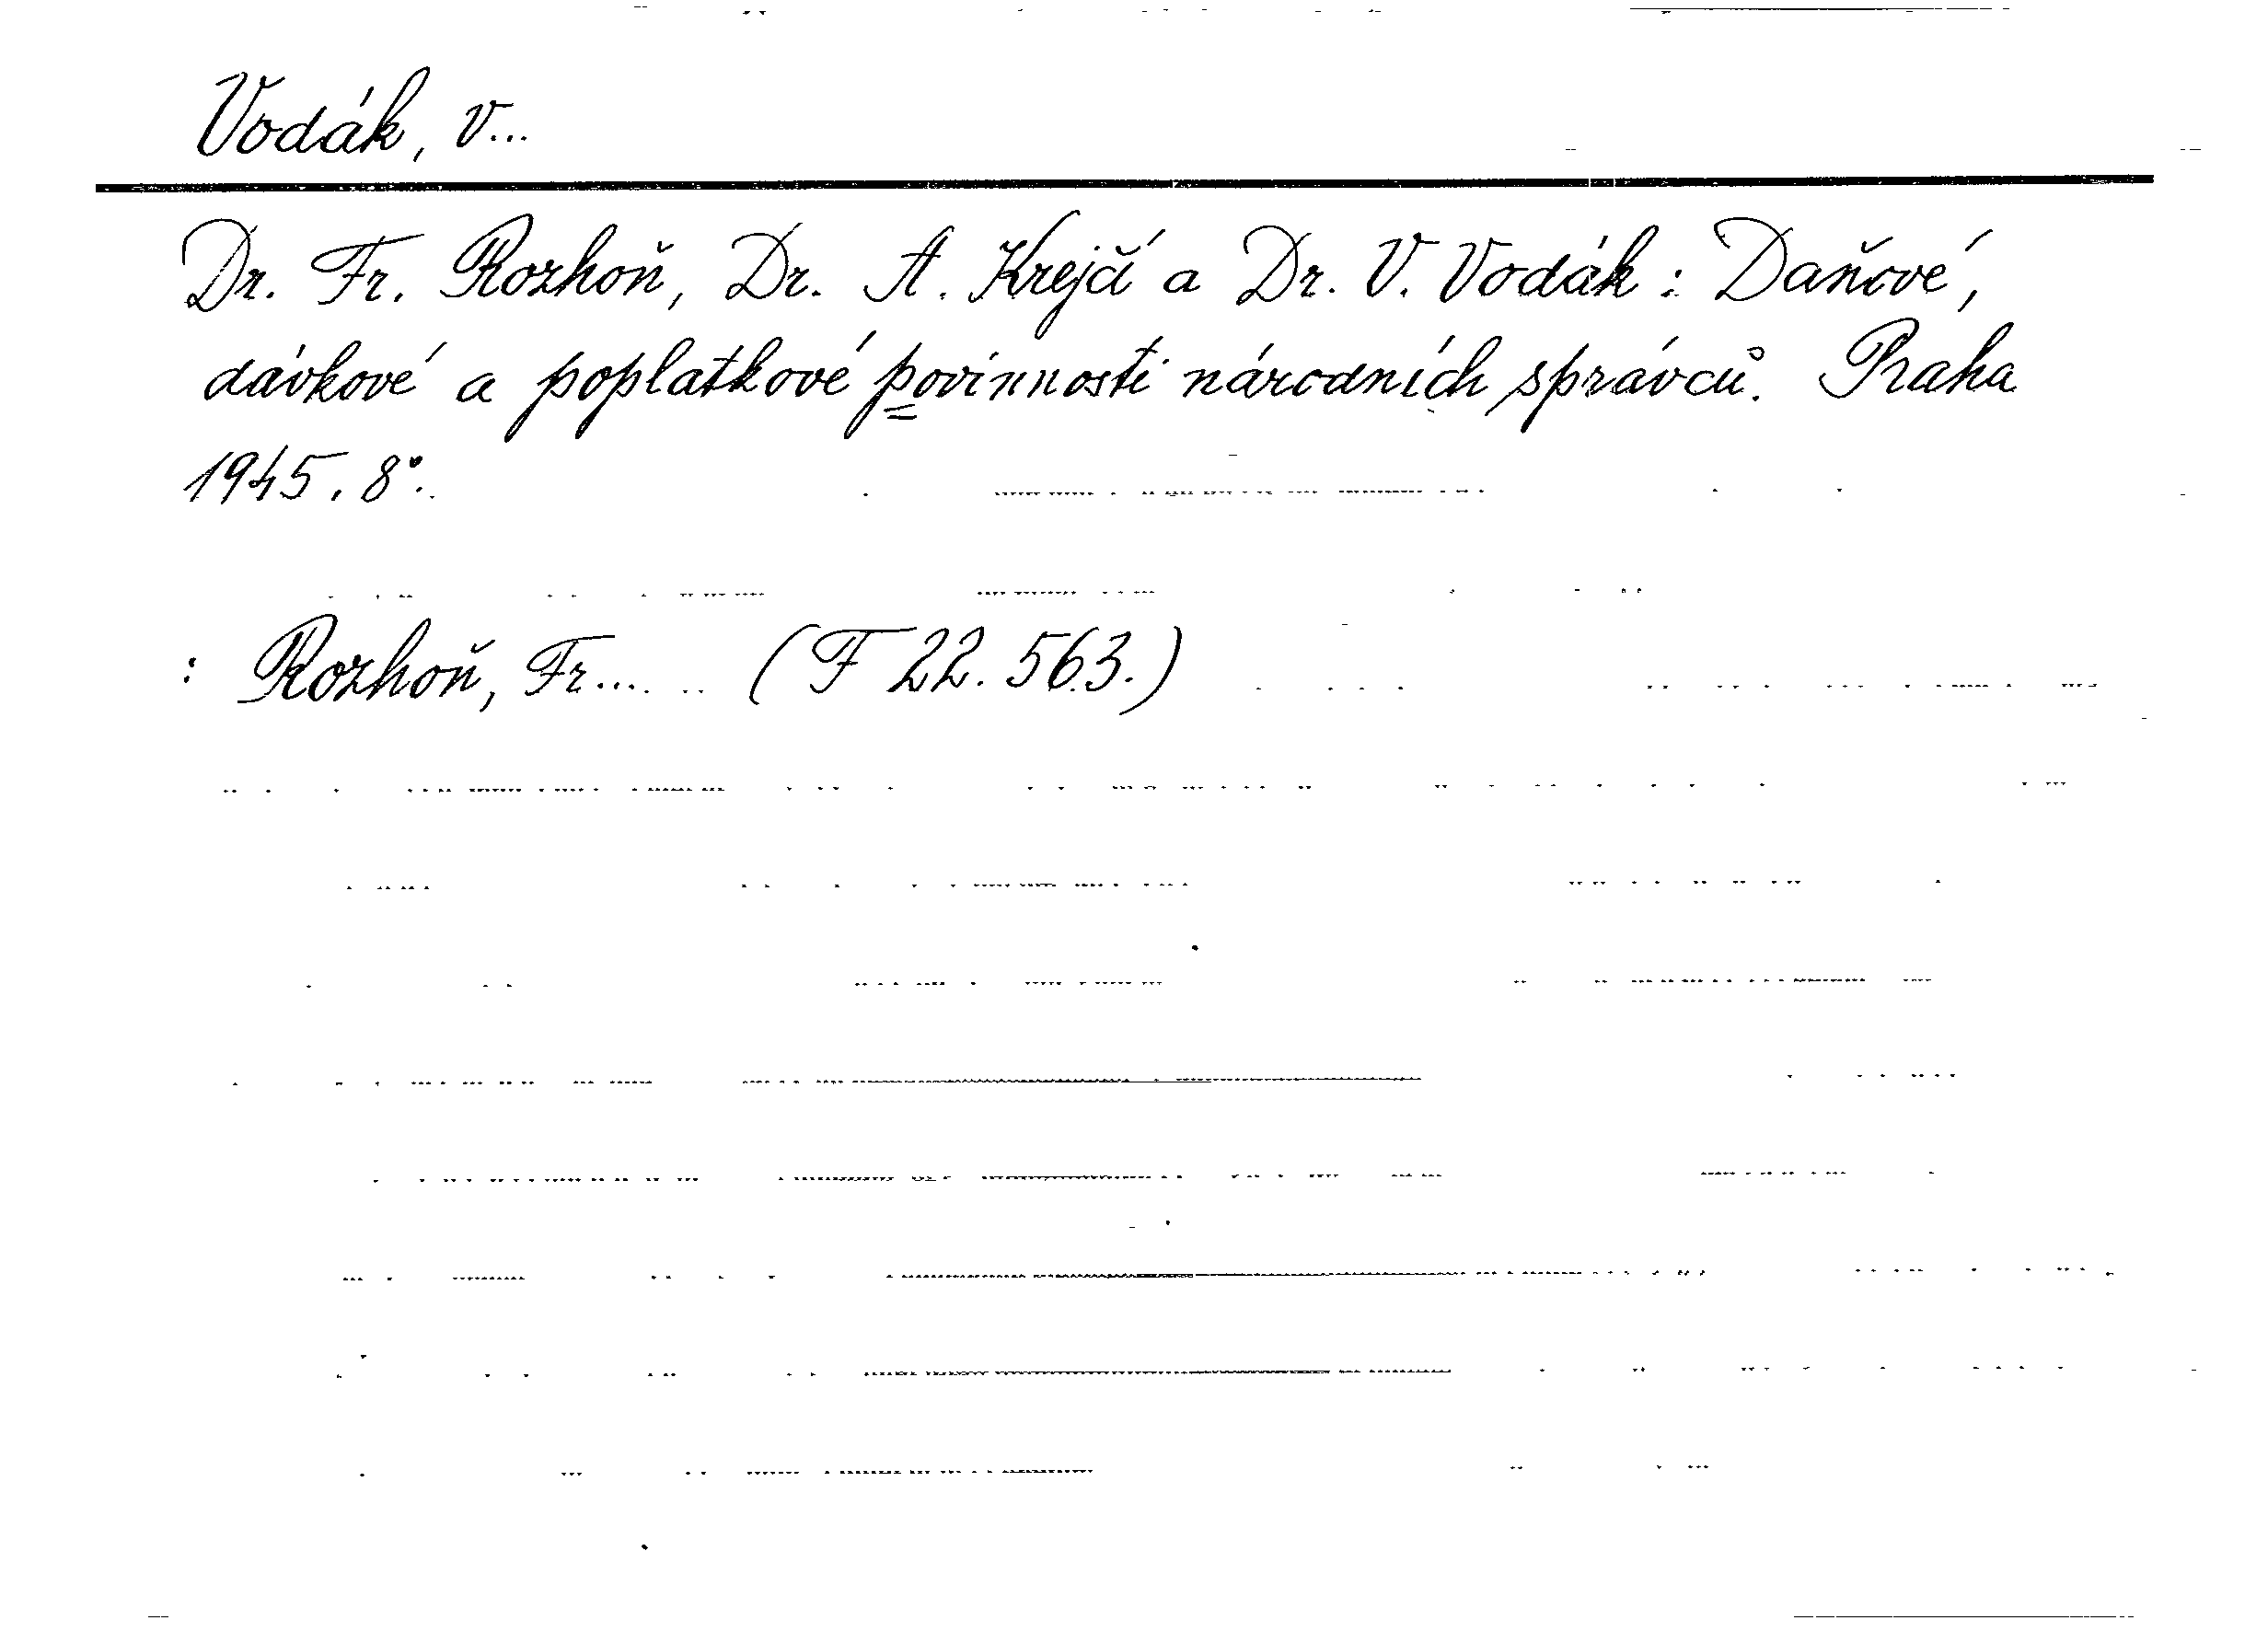 Vodák, V...
Dr. Fr. Rozhoň, Dr. A. Krejčí a Dr. V. Vodák: Daňové,
dávkové a poplatkové povinnosti národních správců. Praha
1945. 8°.
: Rozhoň, Fr..... (F 22.563.)